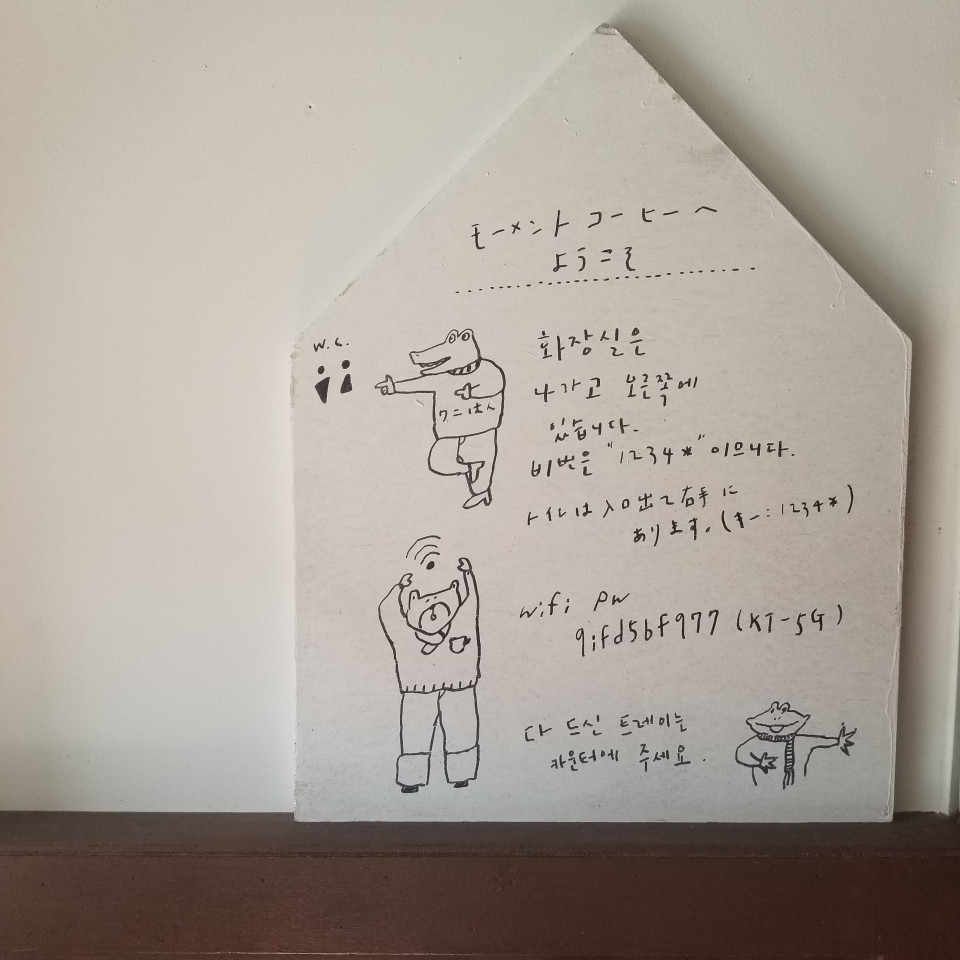 モーメント コーヒーへ
ようこそ
W.C.
ワニはん
화장실은
나가고 오른쪽에
있습니다.
비번은 "1234*"이므니다.
トイレは入口出て右手に
あります。(キー:1234*)
wifi pw
9ifd5bf977 (KT-5G)
다 드신 트레이는
카운터에 주세요.